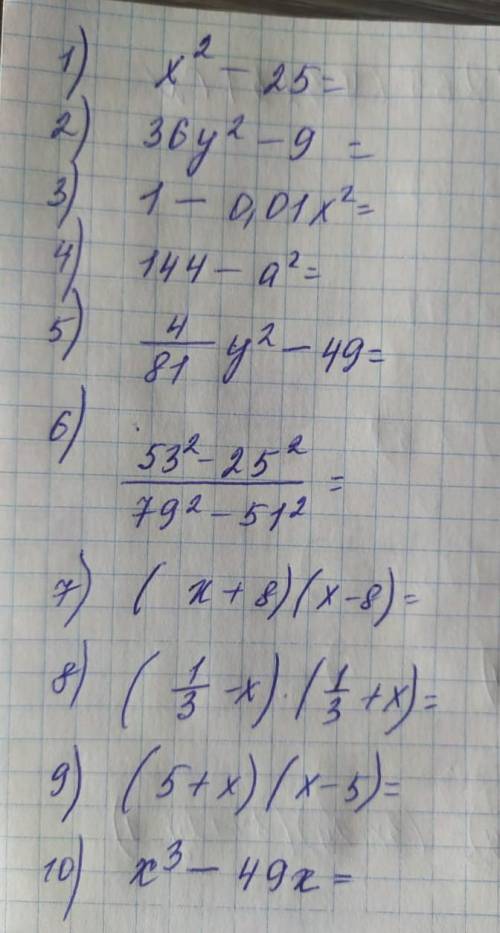 1) x² - 25 =
2) 36y² - 9 =
3) 1 - 0,01x² =
4) 144 - a² =
5) 4/81 y² - 49 =
6) (53² - 25²)/(79² - 51²) =
7) (x + 8)(x - 8) =
8) (1/3 - x) · (1/3 + x) =
9) (5 + x)(x - 5) =
10) x³ - 49x =